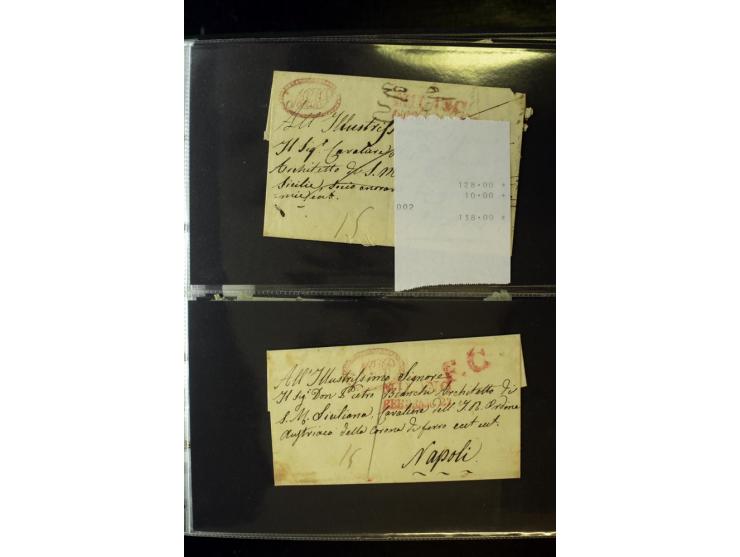 All' Illustriss
Il Sigr. Cavaliere
Architetto di S. M
Sicilie, Socio onorar
15
128·00 +
10·00 +
002
138·00 *
F.C
All' Illustrissimo Signore
Il Sigr. Don Pietro Bianchi Architetto di
S. M. Siciliana, Cavaliere dell' I. R. Ordine
Austriaco della Corona di ferro
15
Napoli.